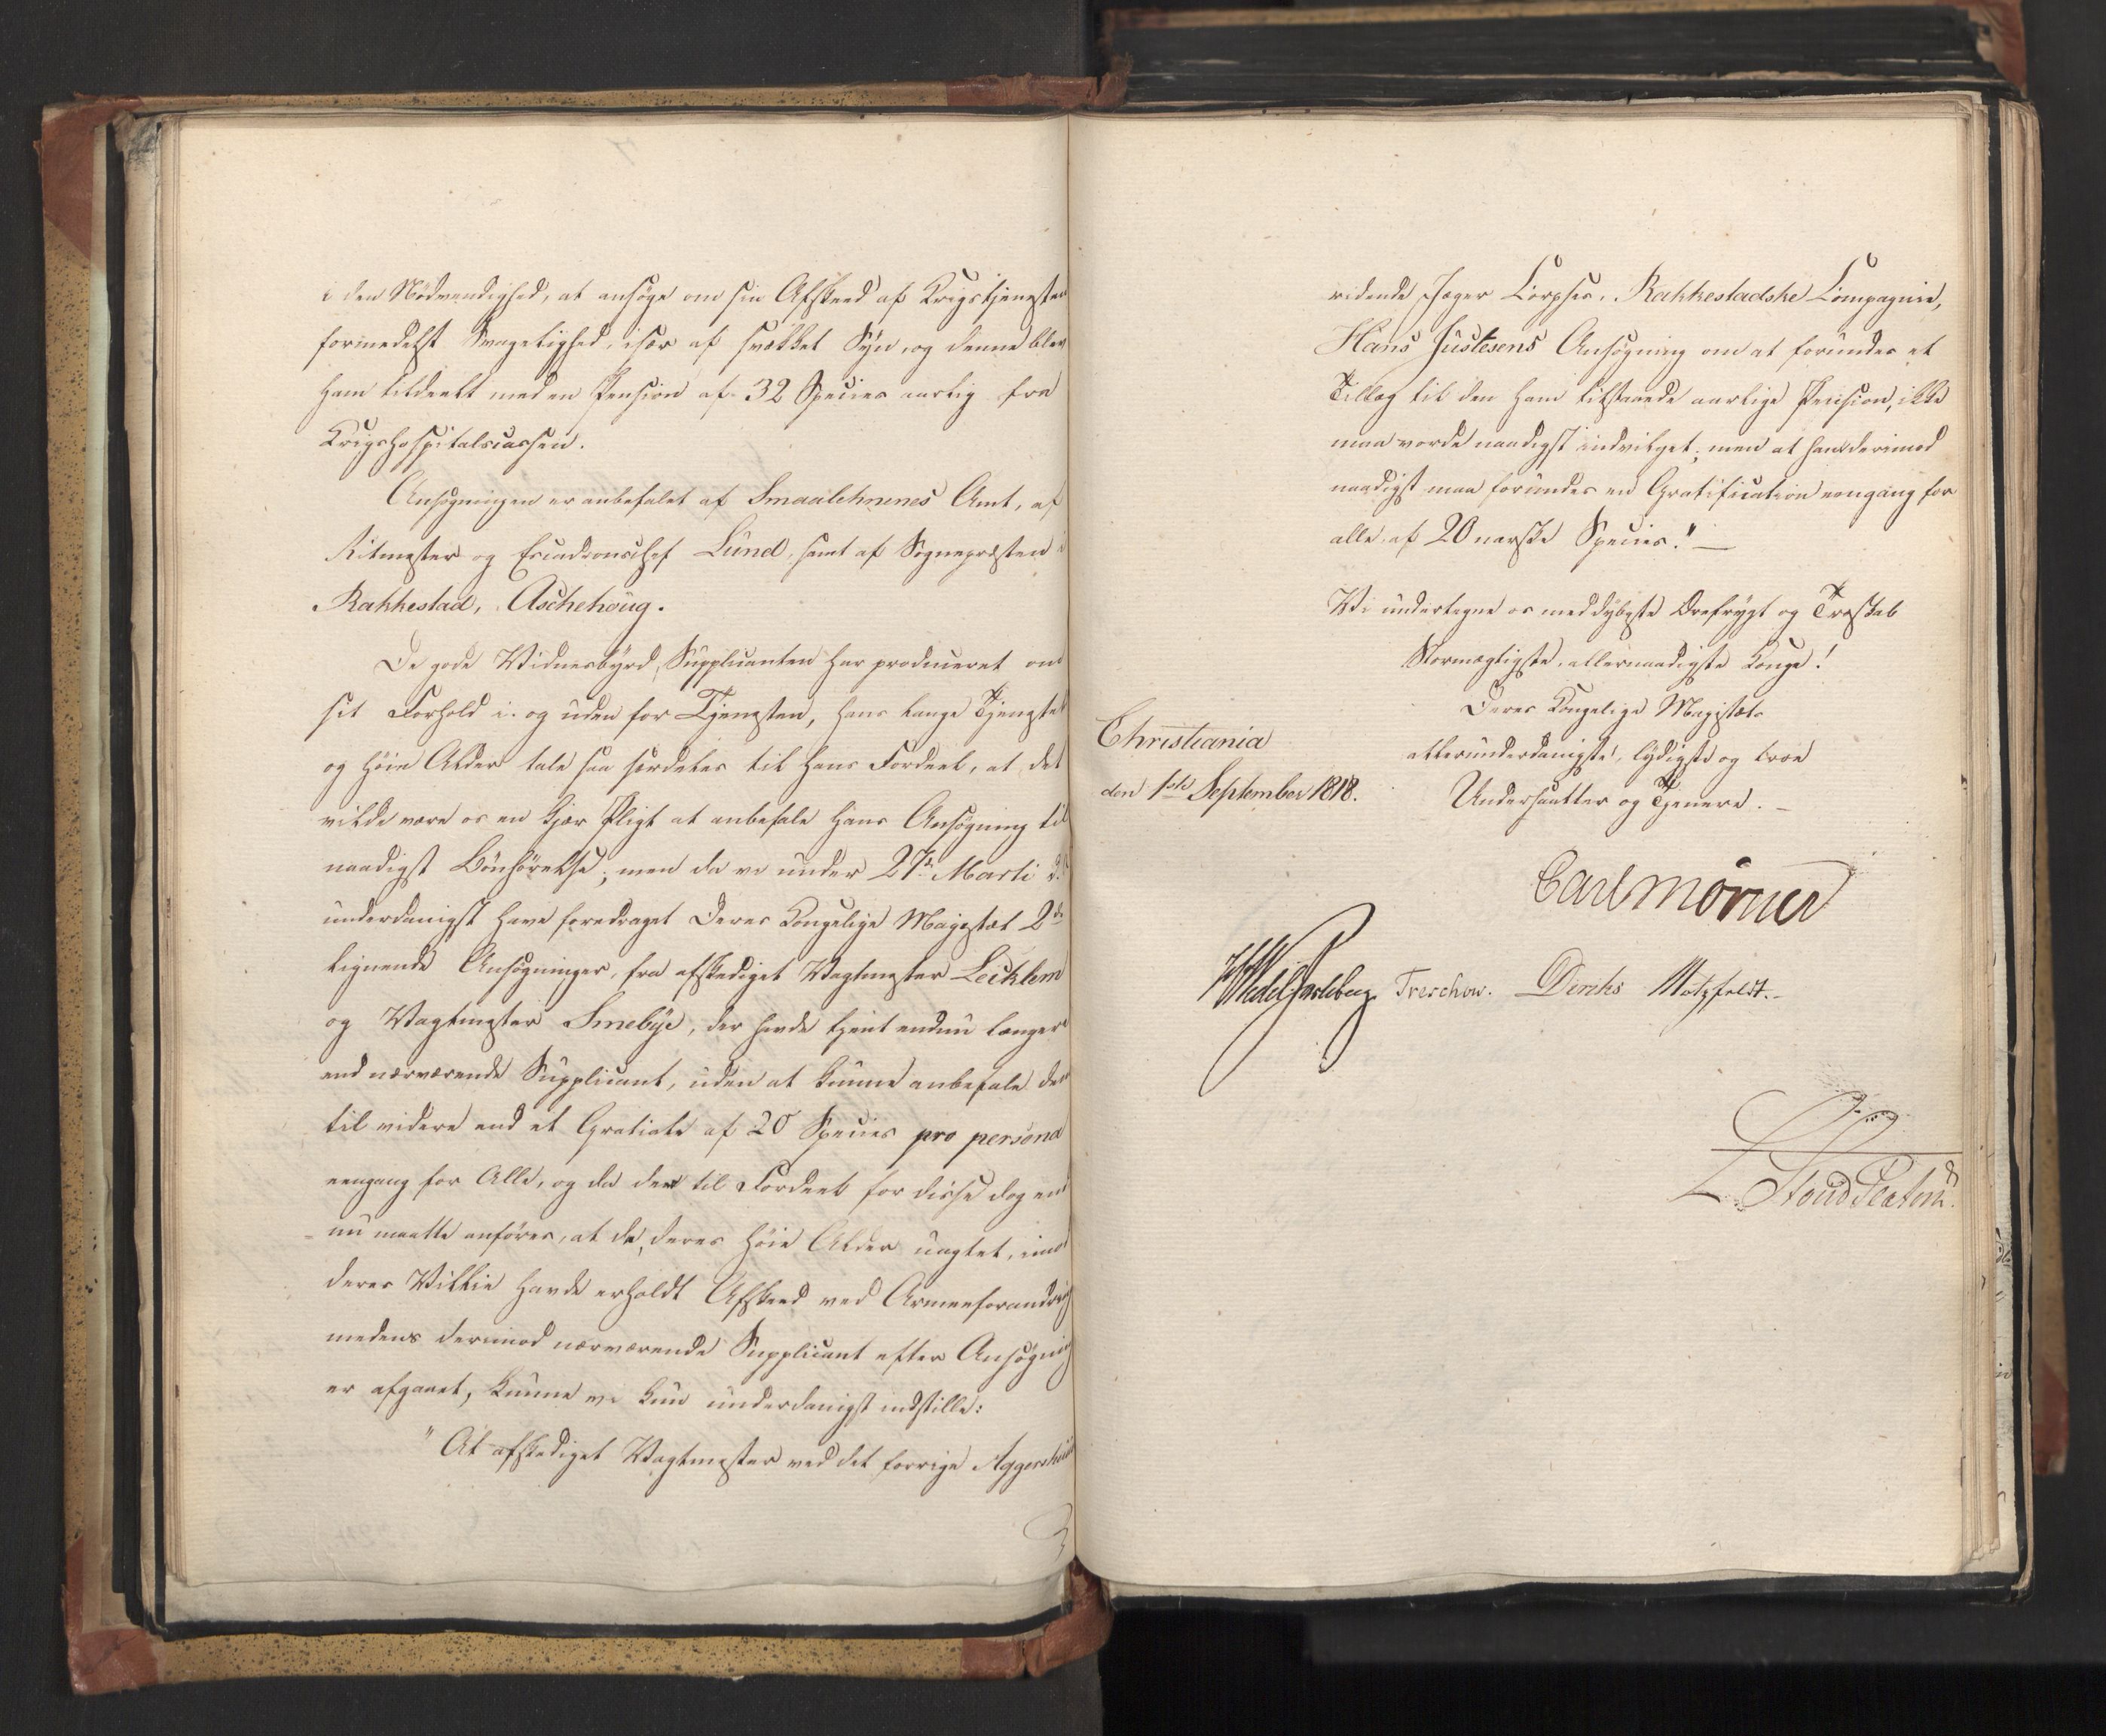 i den Nödvendighed, at ansøge om sin Afskeed af Krigstjenesten
formedelst Svagelighed, især af svækket Syn, og denne blev
ham tildeelt med en Pension af 32 Species aarlig fra
Krigshospitalscassen.
Ansøgningen er anbefalet af Smaalehnenes Amt, af
Ritmester og Escadronschef Lund, samt af Sognepresten i
Rakkestad, Aschehoug.
De gode Vidnesbyrd, Supplicanten har produceret om
sit Forhold i- og uden for Tjenesten, hans lange Tjenestetid
og høie Alder tale saa særdeles til hans Fordeel, at det
vilde være os en kjær Pligt at anbefale hans Ansøgning til
naadigst Bönhörelse; men da vi under 27de Martii d.A.
underdanigst have foredraget Deres Kongelige Majestæt 2de
lignende Ansøgninger, fra afskediget Vagtmester Lecklem
og Vagtmester Smebye, der havde tjent endnu længere
end nærværende Supplicant, uden at kunne anbefale dem
til videre end et Gratiale af 20 Species pro persona
eengang for Alle, og da der til Fordeel for disse dog end-
nu maatte anføres, at de, deres høie Alder uagtet, imod
deres Villie havde erholdt Afskeed ved Armeeforandring
medens derimod nærværende Supplicant efter Ansøgning
er afgaaet, kunne vi kun underdanigst indstille:
"At afskediget Vagtmester ved det forrige Aggershuus
ridende Jæger Corpses Rakkestadske Compagnie,
Hans Justesens Ansøgning om at forundes et
Tillæg til den ham tilstaaede aarlige Pension, ikke
maa vorde naadigst indvilget; men at han derimod
naadigst maa forundes en Gratification eengang for
alle af 20 norske Species." —
Vi undertegne os med dybeste Ærefrygt og Troskab
Stormægtigste, allernaadigste Konge!
Deres Kongelige Majestæts
Christiania
allerunderdanigste, lydigste og troe
den 1ste September 1818.
Undersaatter og Tjenere. —
Carl Mörner
HWedel Jarlsberg Treschow. Diriks Motzfeldt. —
L. Stoud Platou